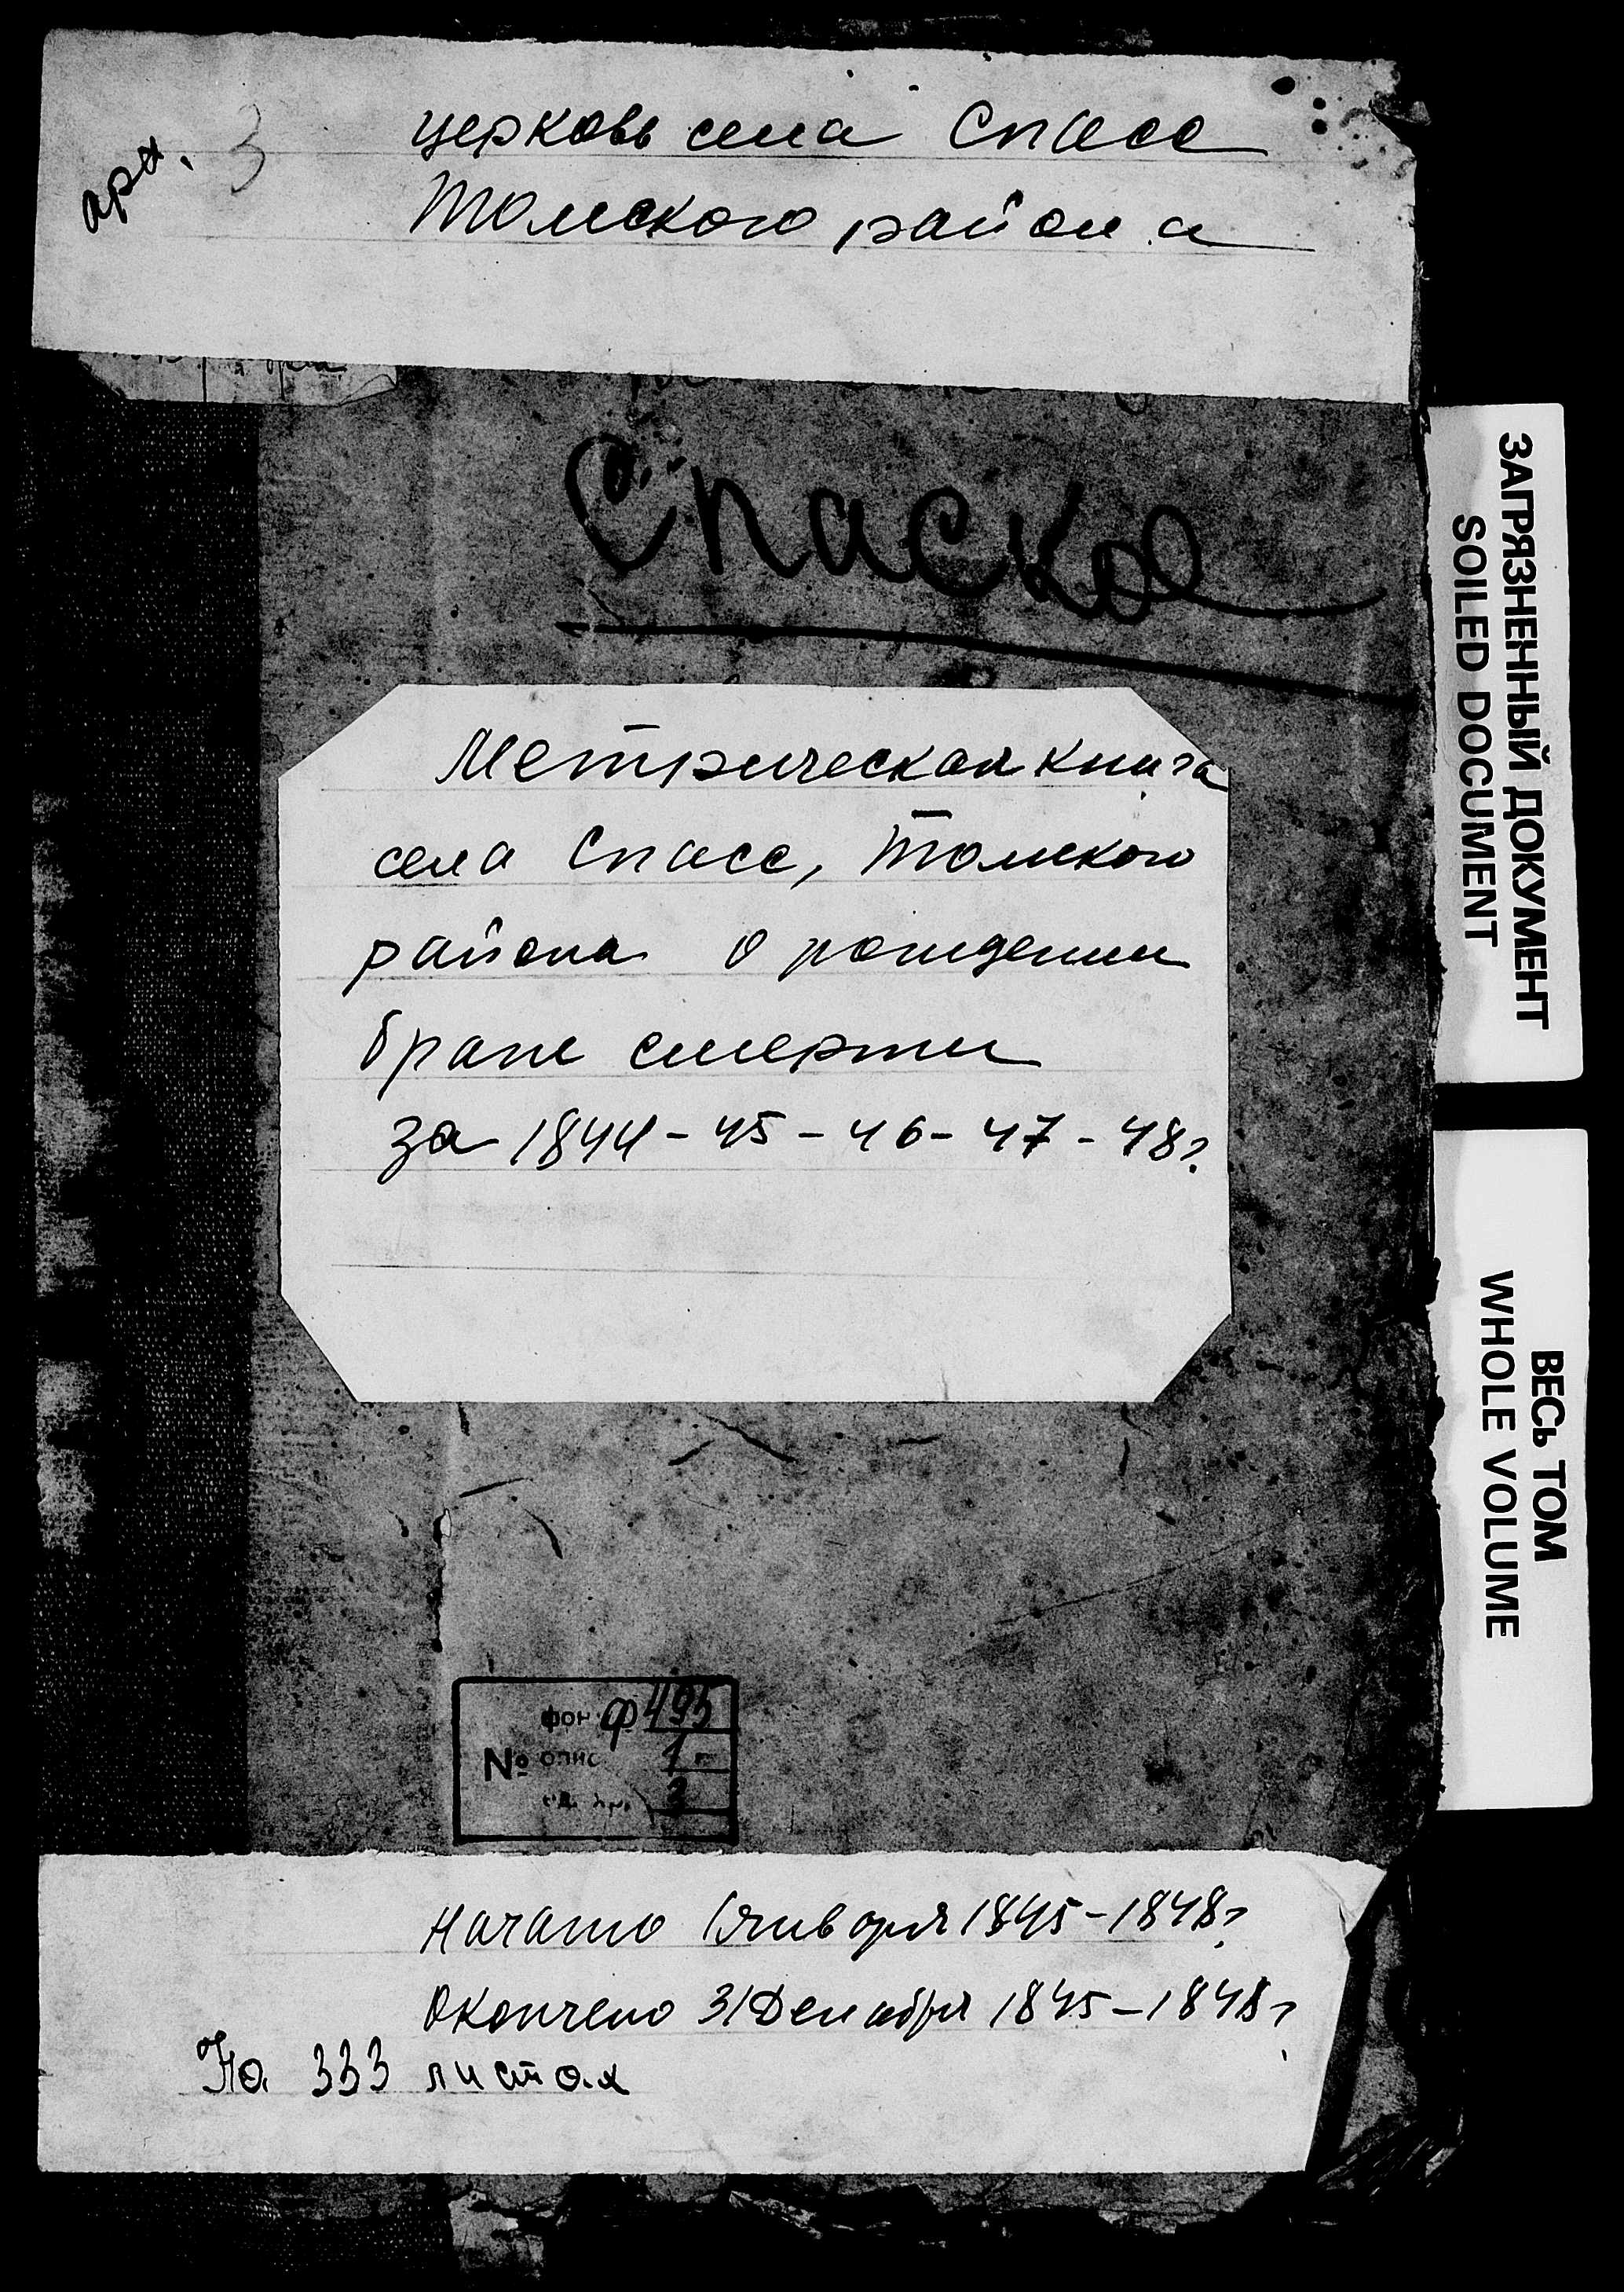 арх. 3
церковь села Спасс
Томского района
Спаско
Метрическая книга
села Спасс, Томского
района о рождении
браке смерти
за 1844-45-46-47-48г.
фон Ф 495
№ опис 1
3
Начато 1 января 1845-1848г.
Окончено 31 Декабря 1845-1848г.
На 333 листах
ЗАГРЯЗНЕННЫЙ ДОКУМЕНТ
SOILED DOCUMENT
ВЕСЬ ТОМ
WHOLE VOLUME